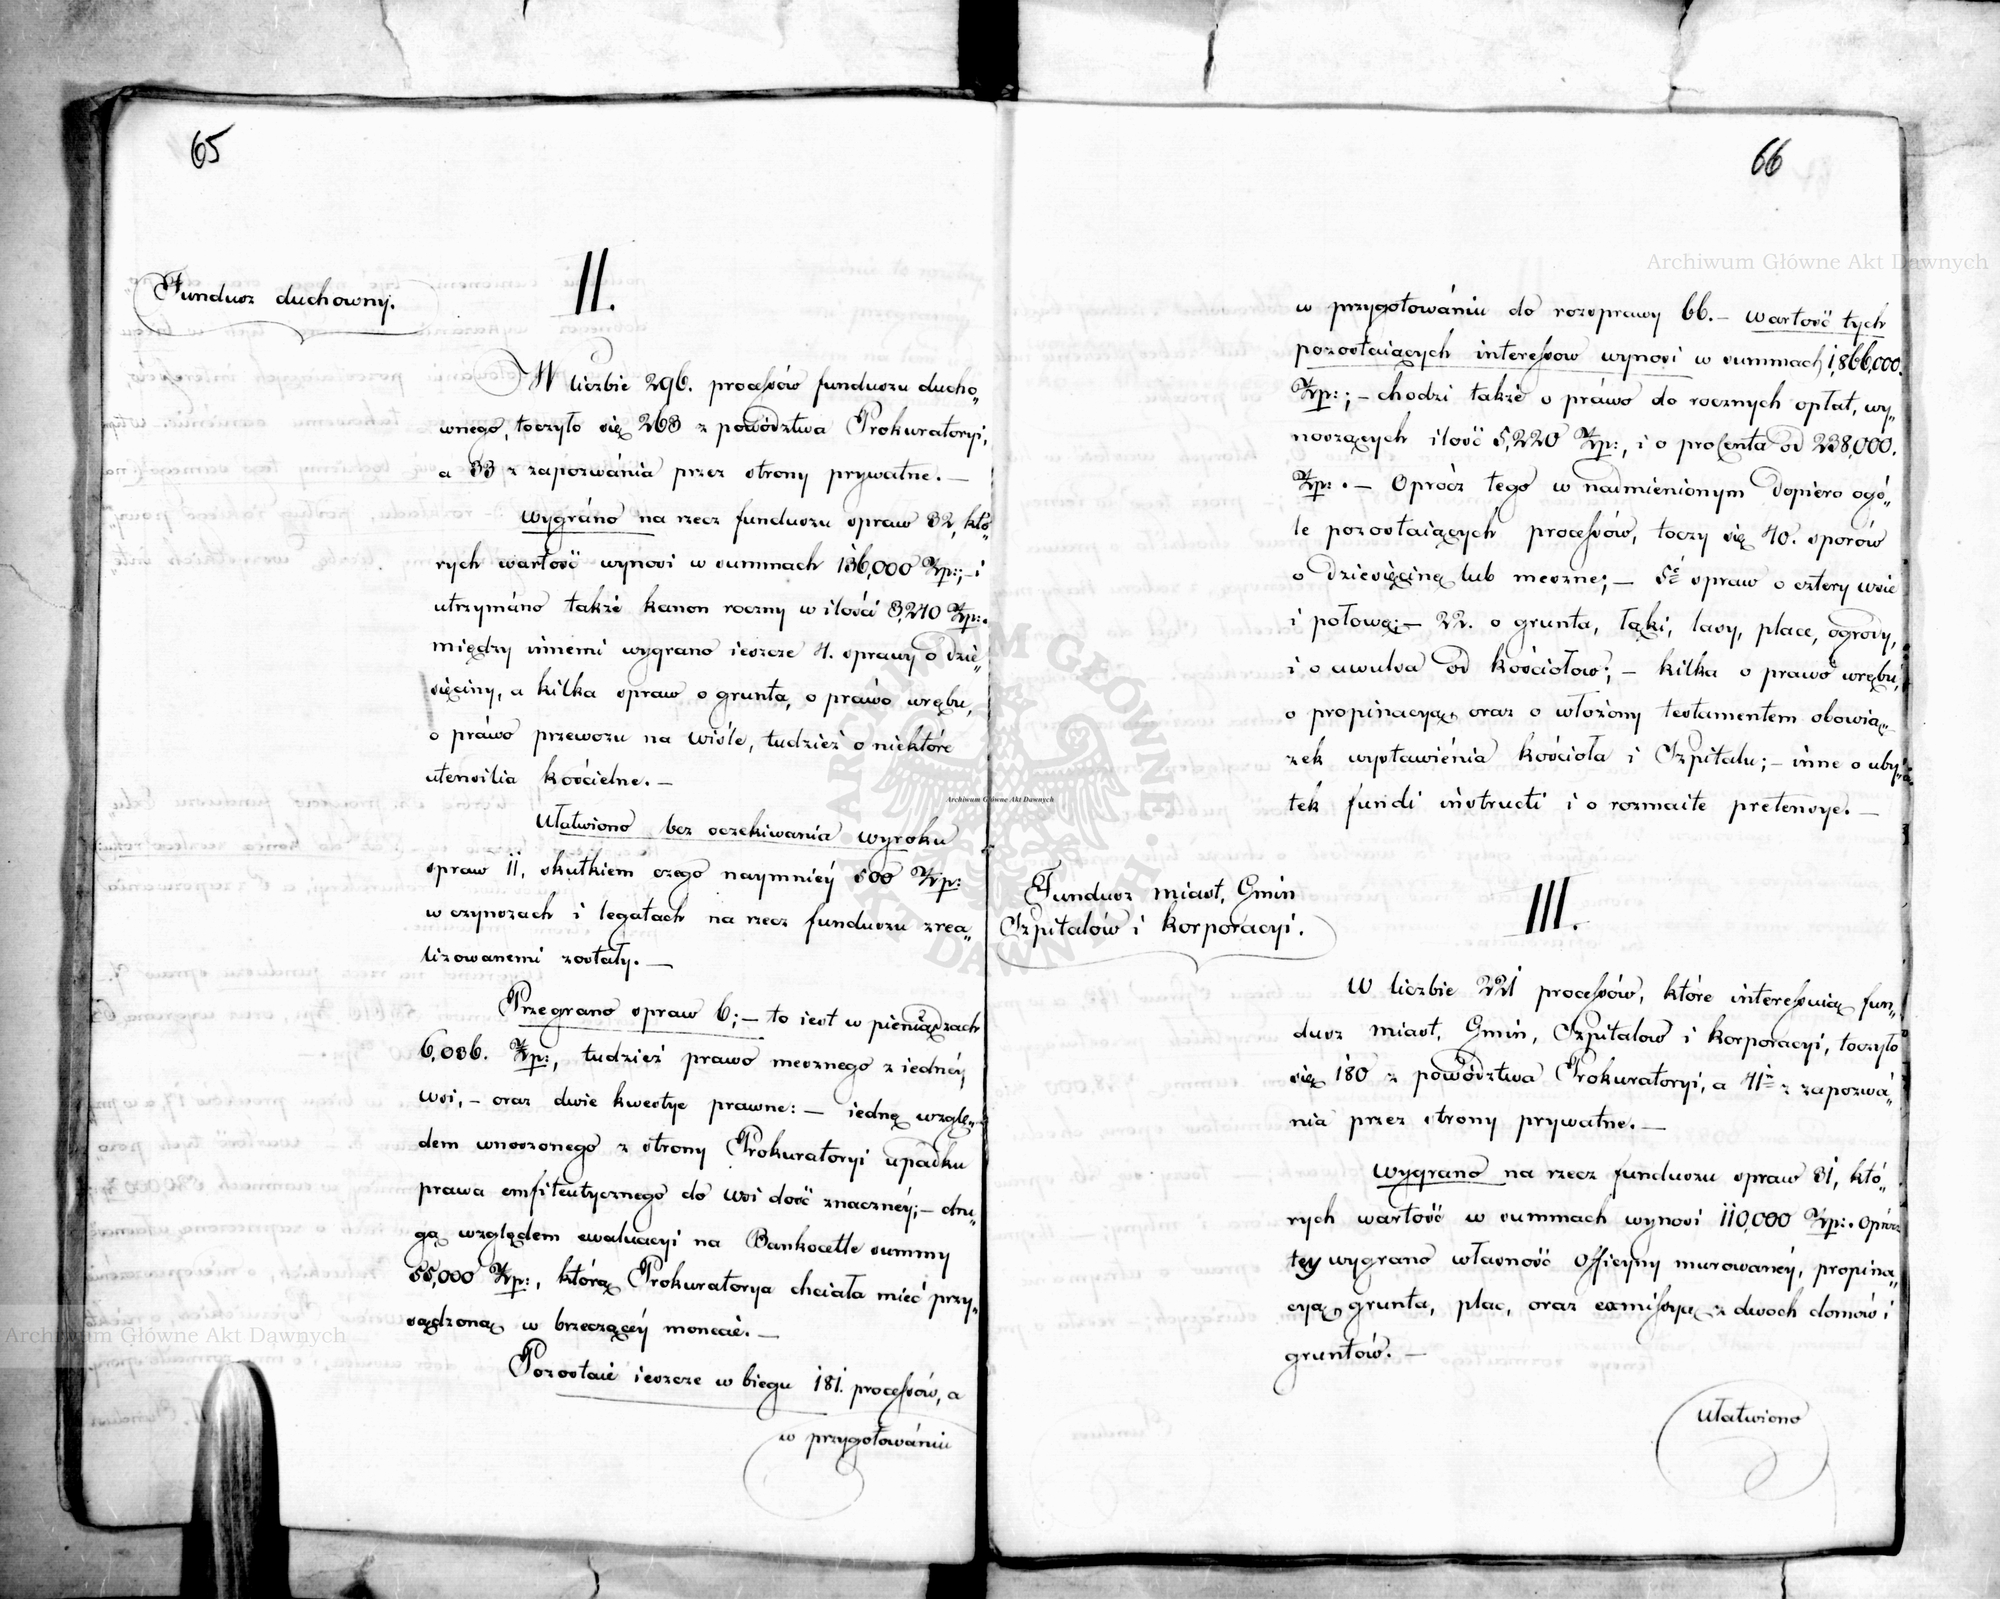 65
Fundusz duchowny.
II.
W liczbie 296. processów funduszu ducho„
wnego, toczyło się 263 z powództwa Prokuratoryi,
a 33 z zapozwánia przez strony prywatne. —
Wygráno na rzecz funduszu spraw 32, któ„
rych wartość wynosi w summach 136,000 Złp:; — i
utrzymáno także kanon roczny w ilości 3,240 Złp:.
między innemi wygrano ieszcze 4. sprawy o dzie„
sięciny, a kilka spraw o grunta, o práwo wrębu,
o práwo przewozu na Wiśle, tudzież o niektóre
utensilia kościelne. —
Ułatwiono bez oczekiwania wyroku
spraw 11, skutkiem czego naymniéy 500 Złp:
w czynszach i legatach na rzecz funduszu zrea„
lizowanemi zostały. —
Przegrano spraw 6; — to iest w pieniądzach
6,036. Złp:, tudzież prawo mesznego z iednéy
wsi, — oraz dwie kwestye prawne: — iednę wzglę„
dem wnoszonego z strony Prokuratoryi upadku
prawa emfiteutycznego do wsi dość znacznéy; — dru„
gą względem ewaluacyi na Bankocetle summy
55,000 Złp:, którą Prokuratorya chciała mieć przy„
sądzoną w brzęczącéy monecie. —
Pozostaie ieszcze w biegu 181. processów, a
w przygotowániu
66
w przygotowániu do rozsprawy 66. — Wartość tych
pozostaiących interessow wynosi w summach 1,866,000.
Złp:; — chodzi także o práwo do rocznych opłat, wy„
noszących ilość 5,220 Złp:, i o procenta od 238,000.
Złp:. — Oprócz tego w nadmienionym dopiero ogó„
le pozostaiących processów, toczy się 40. sporów
o dziesięcinę lub meszne; — 5ć spraw o cztery wsie
i połowę; — 22. o grunta, łąki, lasy, place, ogrody,
i o awulsa od kościołow; — kilka o prawo wrębu,
o propinacyą, oraz o włożony testamentem obowią„
zek wystawiénia kościoła i Szpitalu; — inne o uby„
tek fundi instructi i o rozmaite pretensye. —
Fundusz miast, Gmin
Szpitalów i korporacyi.
III.
W liczbie 221 processów, które interessuią fun„
dusz miast, Gmin, Szpitalow i korporacyi, toczyło
się 180 z powództwa Prokuratoryi, a 41 z zapozwá„
nia przez strony prywatne. —
Wygrano na rzecz funduszu spraw 31, któ„
rych wartość w summach wynosi 110,000 Złp:. Oprócz
tey wygrano własność officyny murowanéy, propina„
cyą, grunta, plac, oraz exmissyą z dwoch domów i
gruntów. —
Ułatwiono
Archiwum Główne Akt Dawnych
Archiwum Główne Akt Dawnych
Archiwum Główne Akt Dawnych
ARCHIWUM GŁÓWNE AKT DAWNYCH